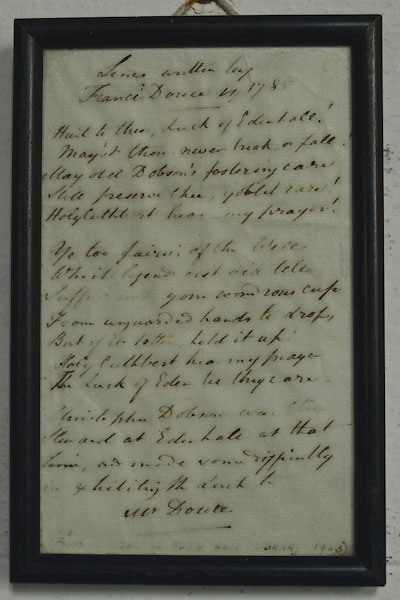 Lines written by
Francis Douce in 1785
Hail to thee, Luck of Edenhall!
May'st thou never break or fall!
May old Dobson's fostering care
Still preserve thee, goblet rare!
Holy Cuthbert hear my prayer!
Ye too fairies of the
Who legends tell
Suffer not your wondrous cup
From unguarded hands to drop,
But if it totter hold it up!
Holy Cuthbert hear my prayer
The Luck of Eden be thy care
Christopher Dobson was the
Steward at Edenhall at that
time, and made some difficulty
in exhibiting the Luck to
Mr Douce.